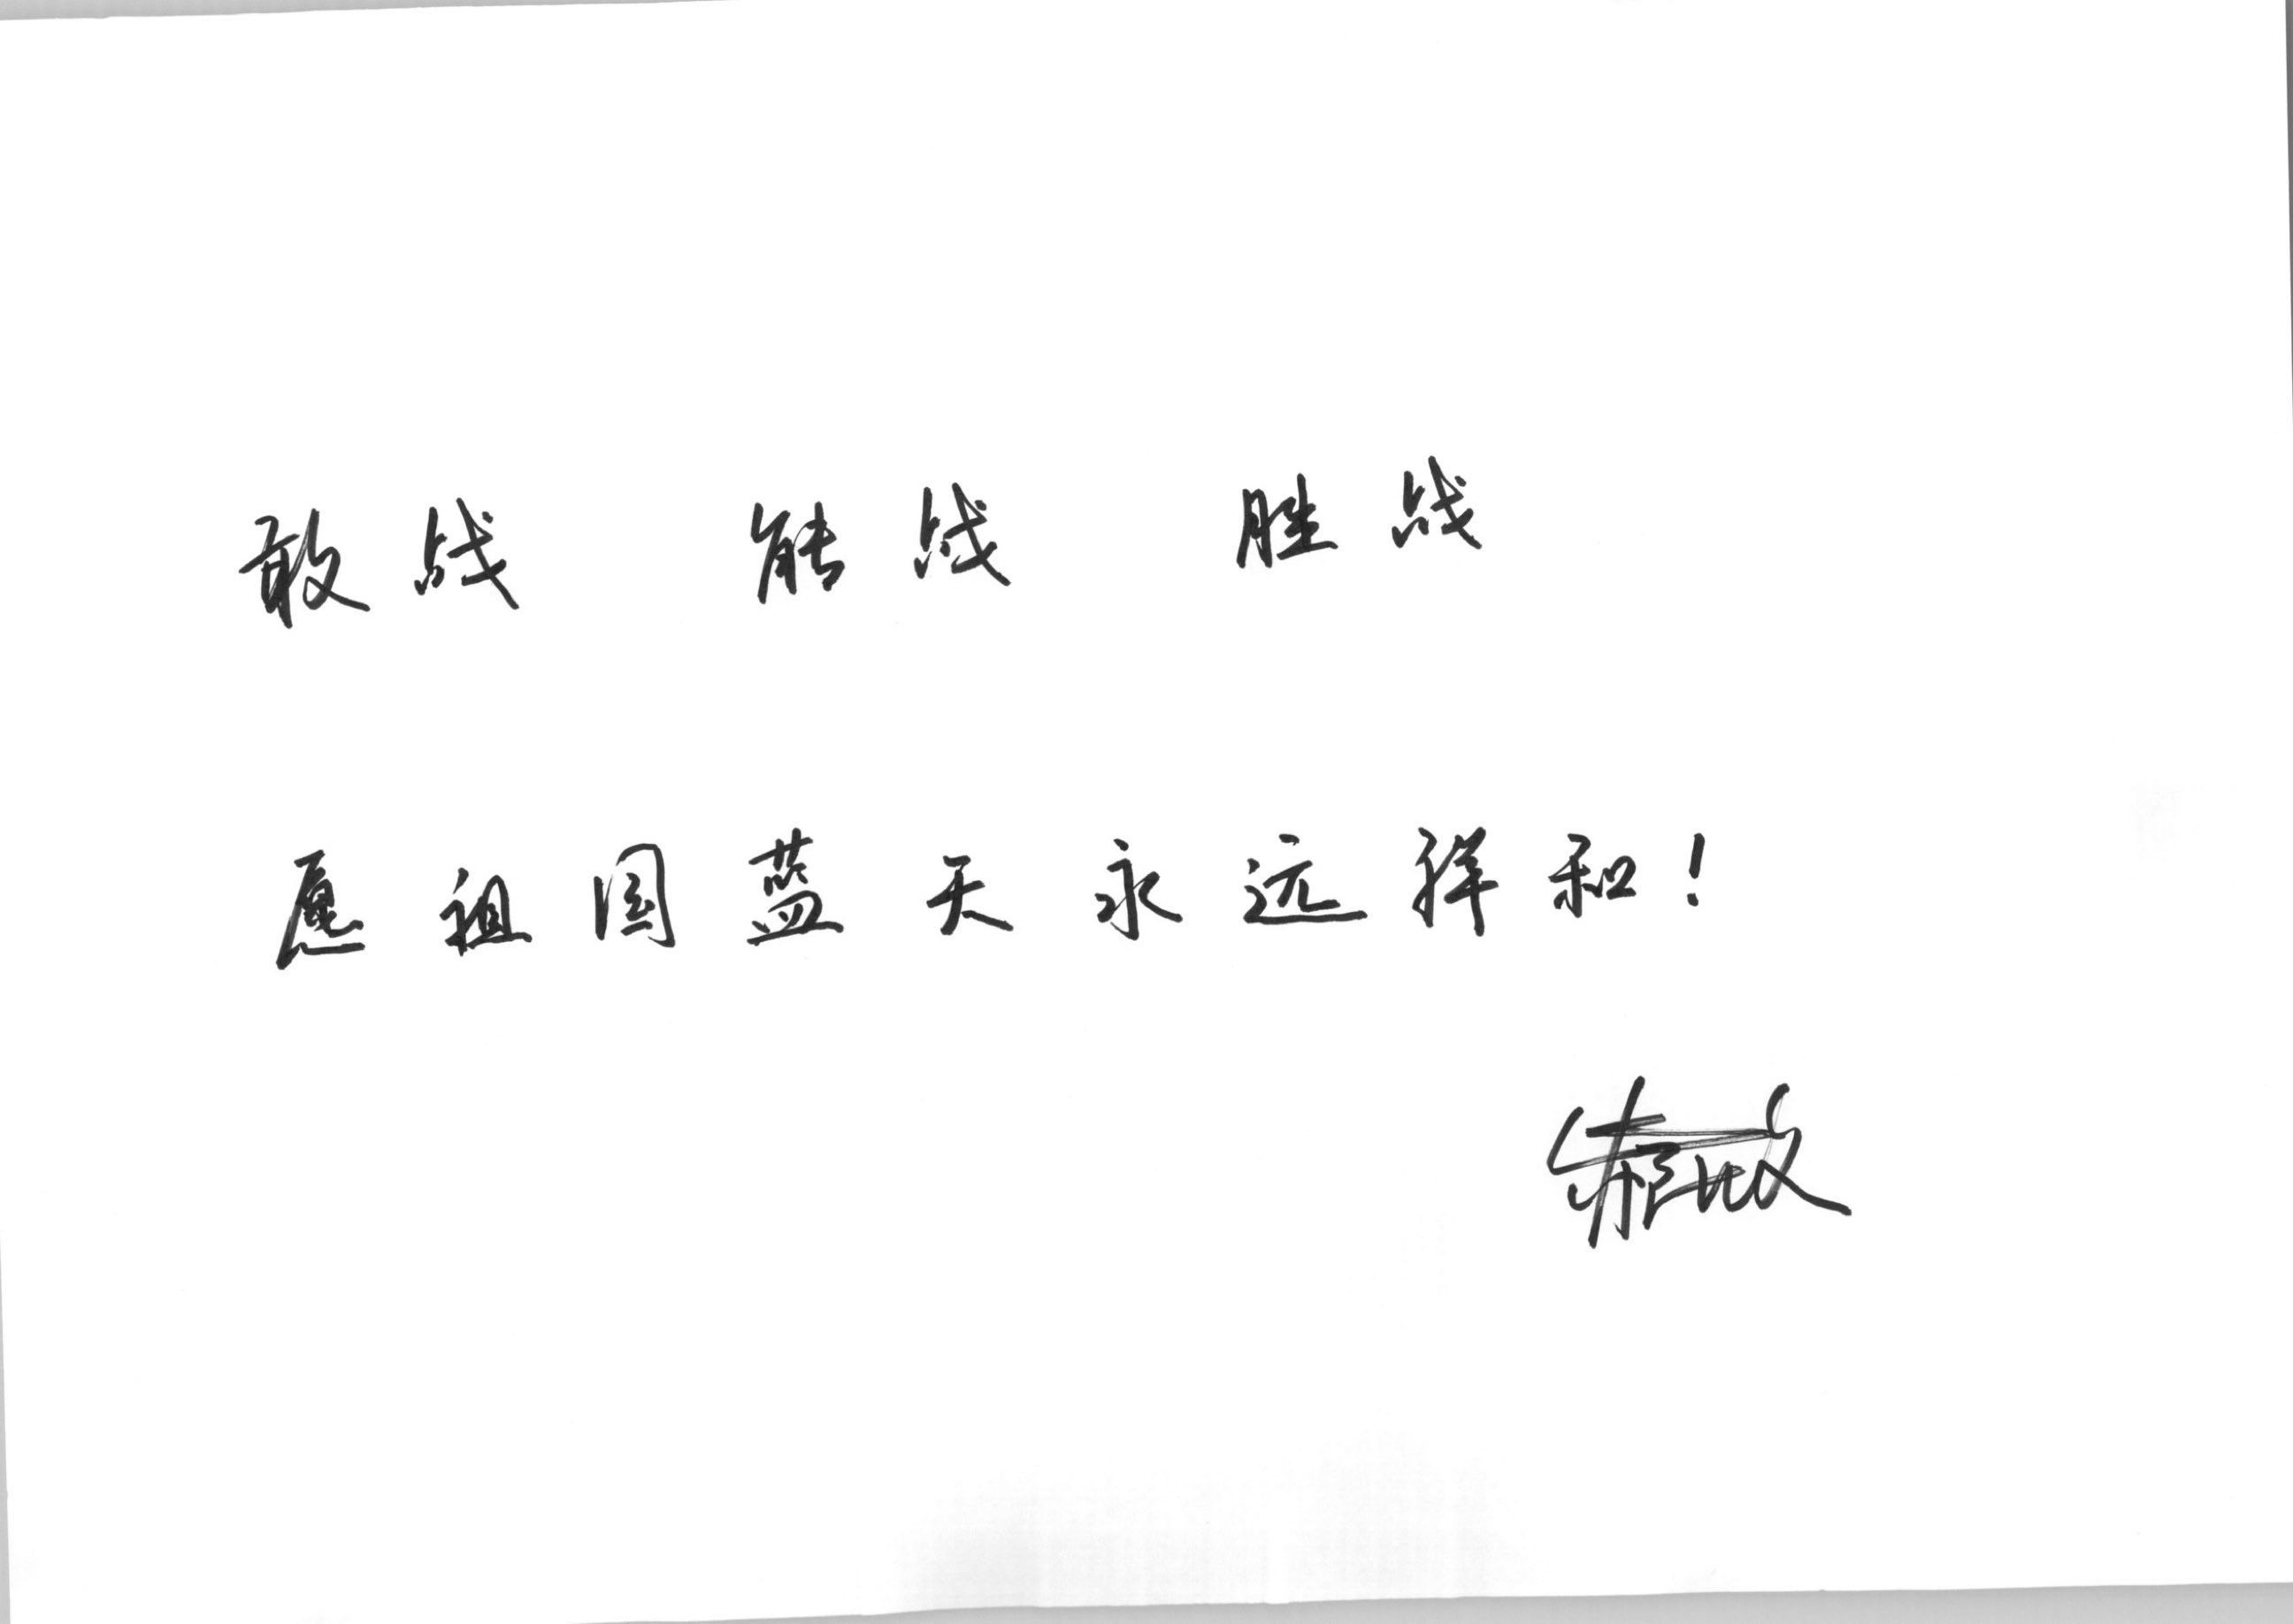 敢战 能战 胜战
愿祖国蓝天永远祥和！